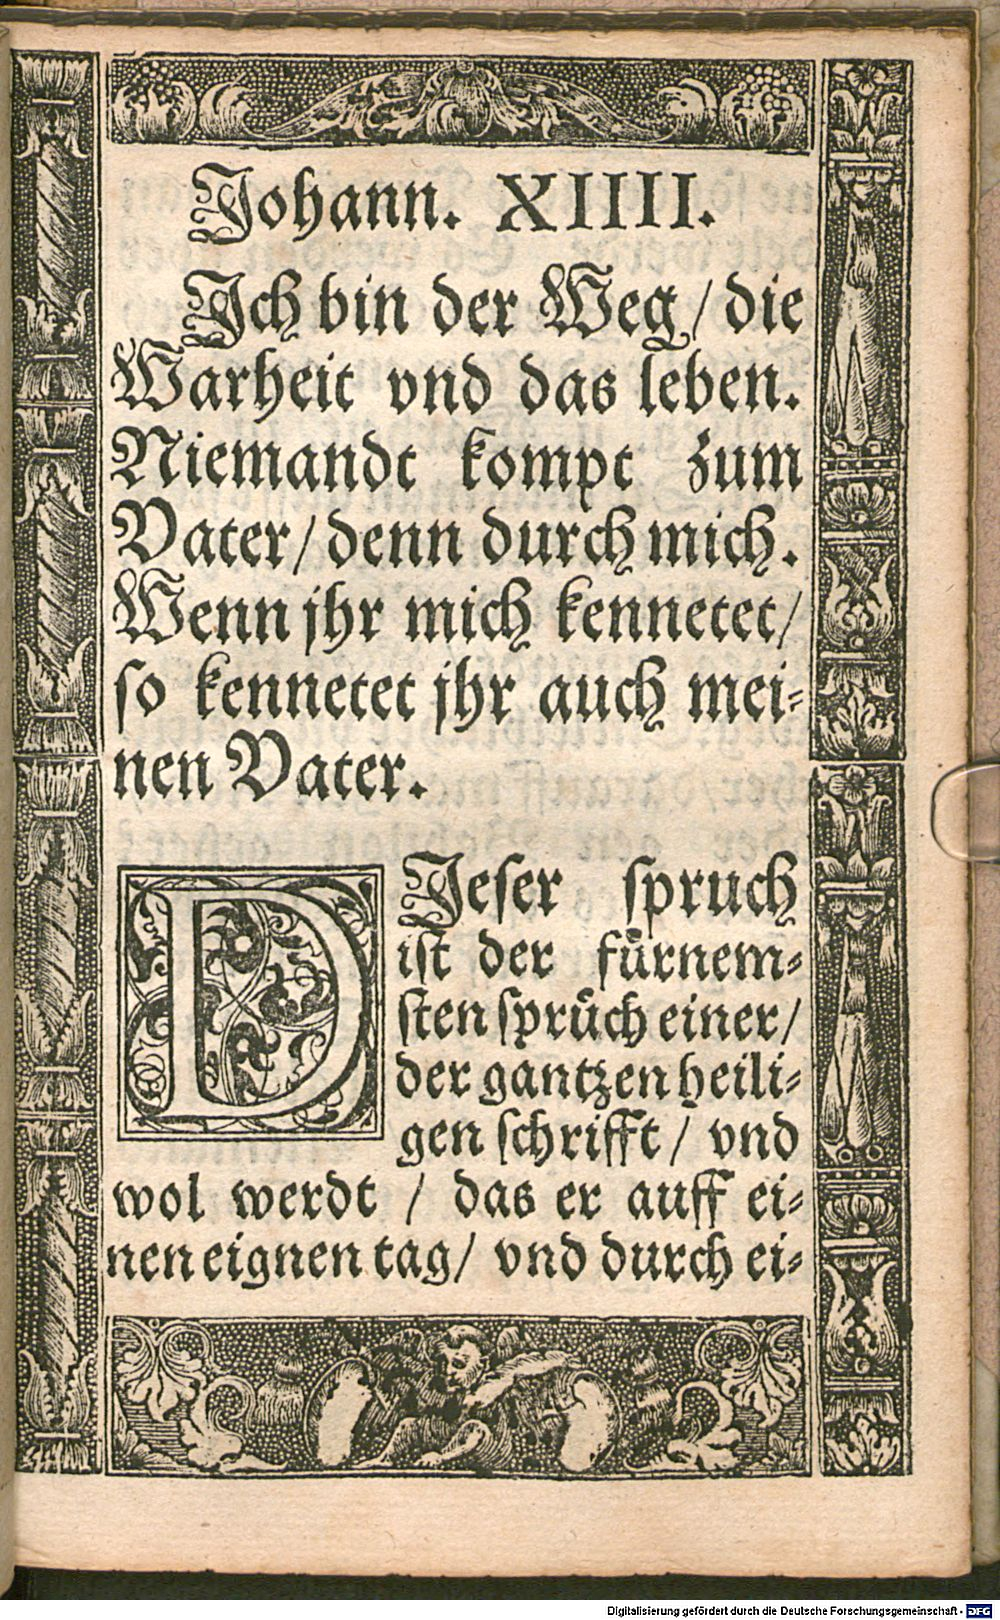 Johann. XIIII.
Ich bin der Weg/ die
Warheit vnd das leben.
Niemandt kompt zum
Vater/ denn durch mich.
Wenn jhr mich kennetet/
so kennetet jhr auch mei-
nen Vater.
DIeser spruch
ist der fuͤrnem-
sten spruͤch einer/
der gantzen heili-
gen schrifft / vnd
wol werdt / das er auff ei-
nen eignen tag/ vnd durch ei-
Digitalisierung gefördert durch die Deutsche Forschungsgemeinschaft - DFG